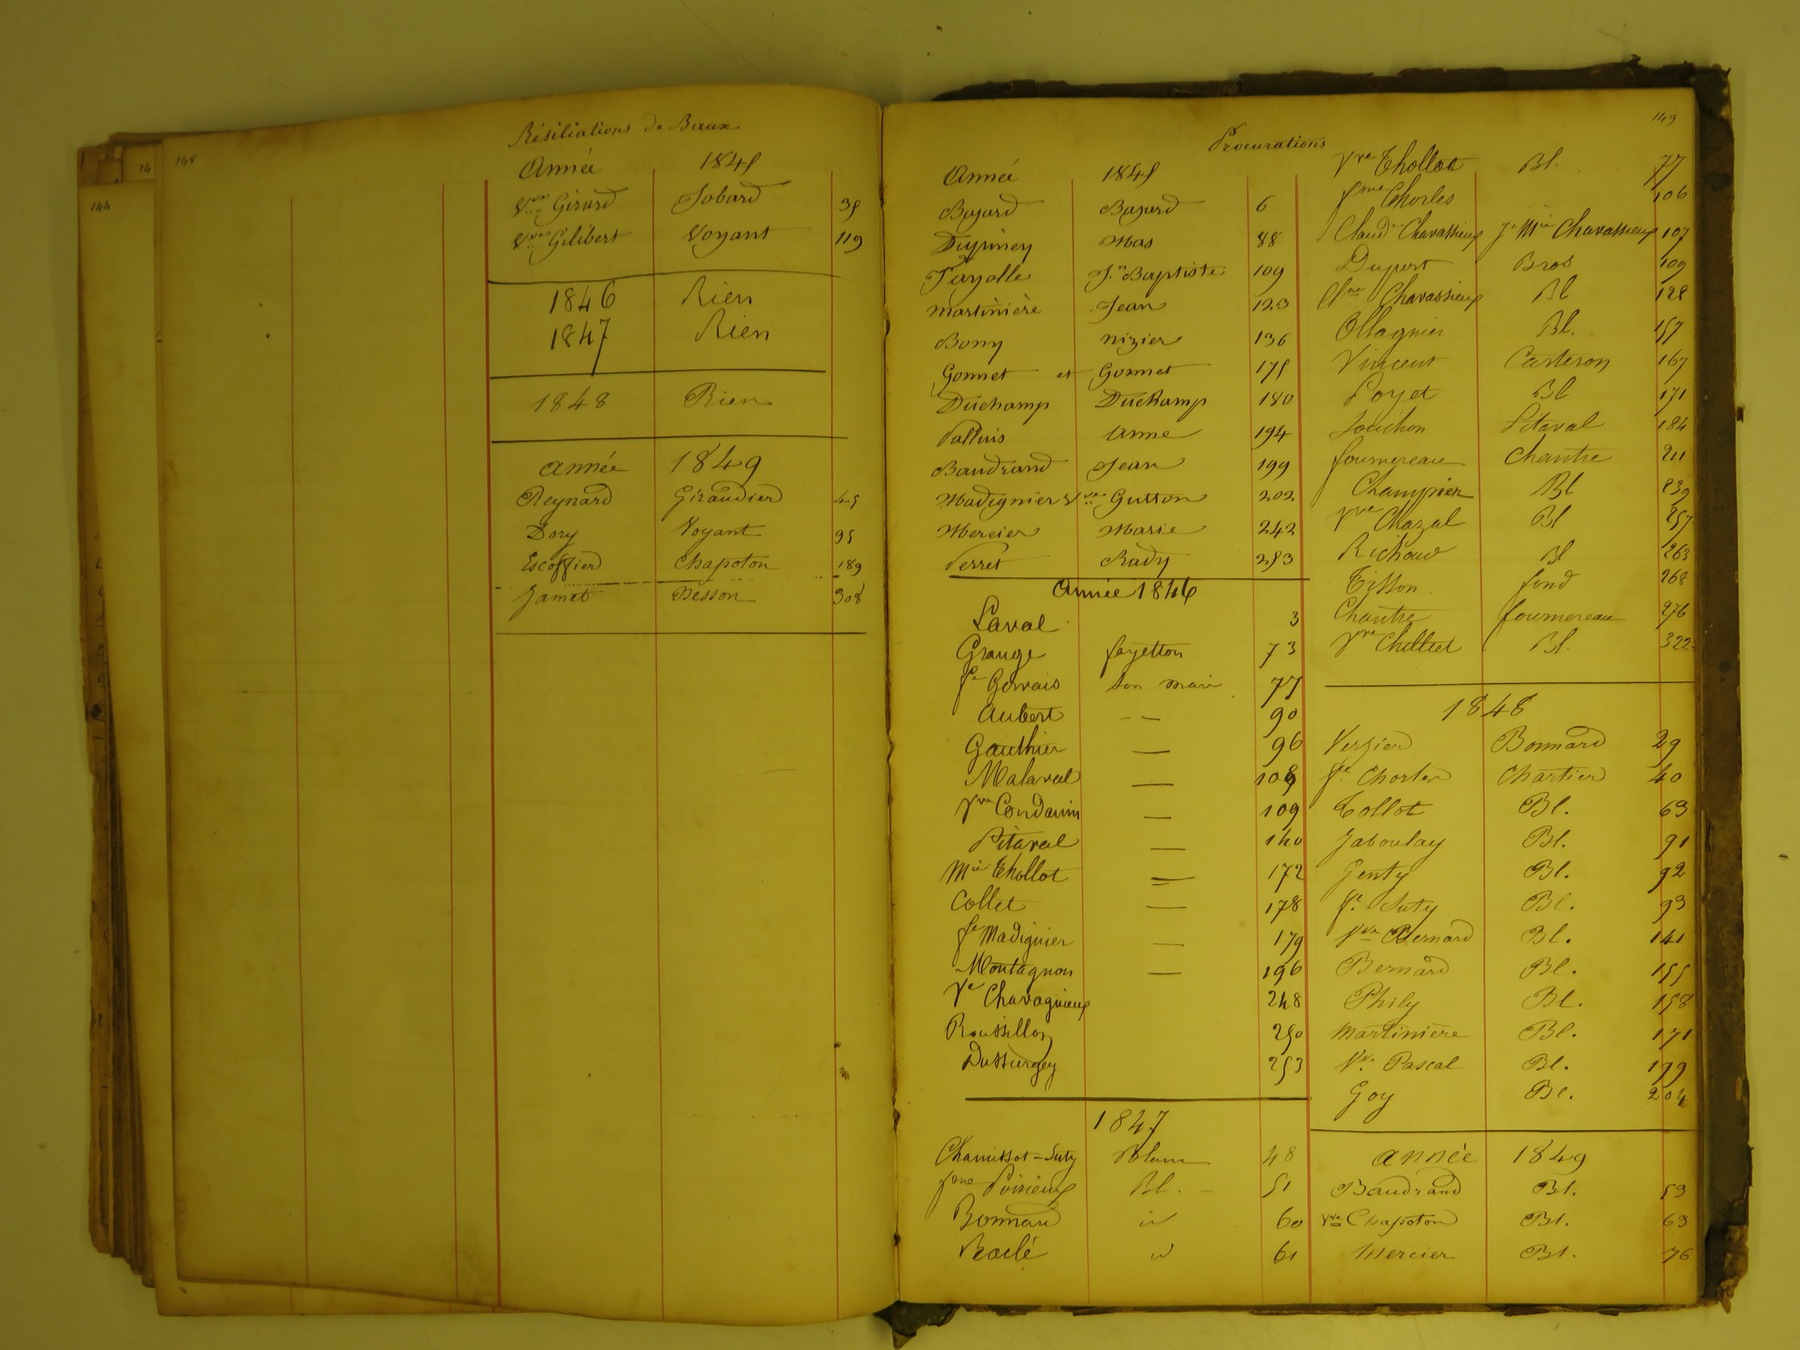 148
144
14
Résiliations de Baux
Année 1845
Vve Girard Jobard 35
Vve Gilibert Voyant 119
1846 Rien
1847 Rien
1848 Rien
année 1849
Reynard Giraudier 45
Dory Voyant 95
Escoffier Chapoton 189
Jamet Besson 308
149
Procurations
Année 1845
Bajard Bajard 6
Dupiney Mas 88
Fayolle Jn Baptiste 109
Martinière Jean 123
Bony Nizier 136
Gonnet et Gonnet 175
Duchamp Duchamp 180
Palluis Anne 194
Baudrand Jean 199
Madignier Vve Gutton 202
Mercier Marie 242
Verret Rady 253
Année 1846
Laval 3
Grange fayetton 73
fe Gervais son mari 77
Aubert — 90
Gauthier — 96
Malaval — 108
Vve Condamin 109
Pitaval — 140
Mie Thollot — 172
Collet — 178
fe Madignier — 179
Montagnon — 196
Ve Chavagnieux 248
Roussillon 250
Dussurgey 253
1847
Chamissot-Suty Blanc 48
fme Poirieux Bl. 51
Bonnard id 60
61
Vve Thollot Bl. 77
fme Chorles 106
Claude Chavassieux Je Mie Chavassieux 107
Dupert Bros 109
Chavassieux Bl 128
Ollagnier Bl. 157
Vincent Carteron 167
Poyet Bl 171
Souchon Pitaval 184
fournereau Chantre 211
Champier Bl 239
Vve Chazal Bl 257
Richoud Bl 263
Tisson fond 268
Chantre fournereau 276
Vve Bl. 322
1848
Verzier Bonnard 29
fe Chorles Chartier 40
Tollot Bl. 63
Jaboulay Bl. 91
Genty Bl. 92
fe Suty Bl. 93
Vve Bernard Bl. 141
Bernard Bl. 155
Phily Bl. 158
Martinière Bl. 171
Ve Pascal Bl. 199
Goy Bl. 204
année 1849
Baudrand Bl. 53
Vve Chapoton Bl. 63
Mercier Bl. 76